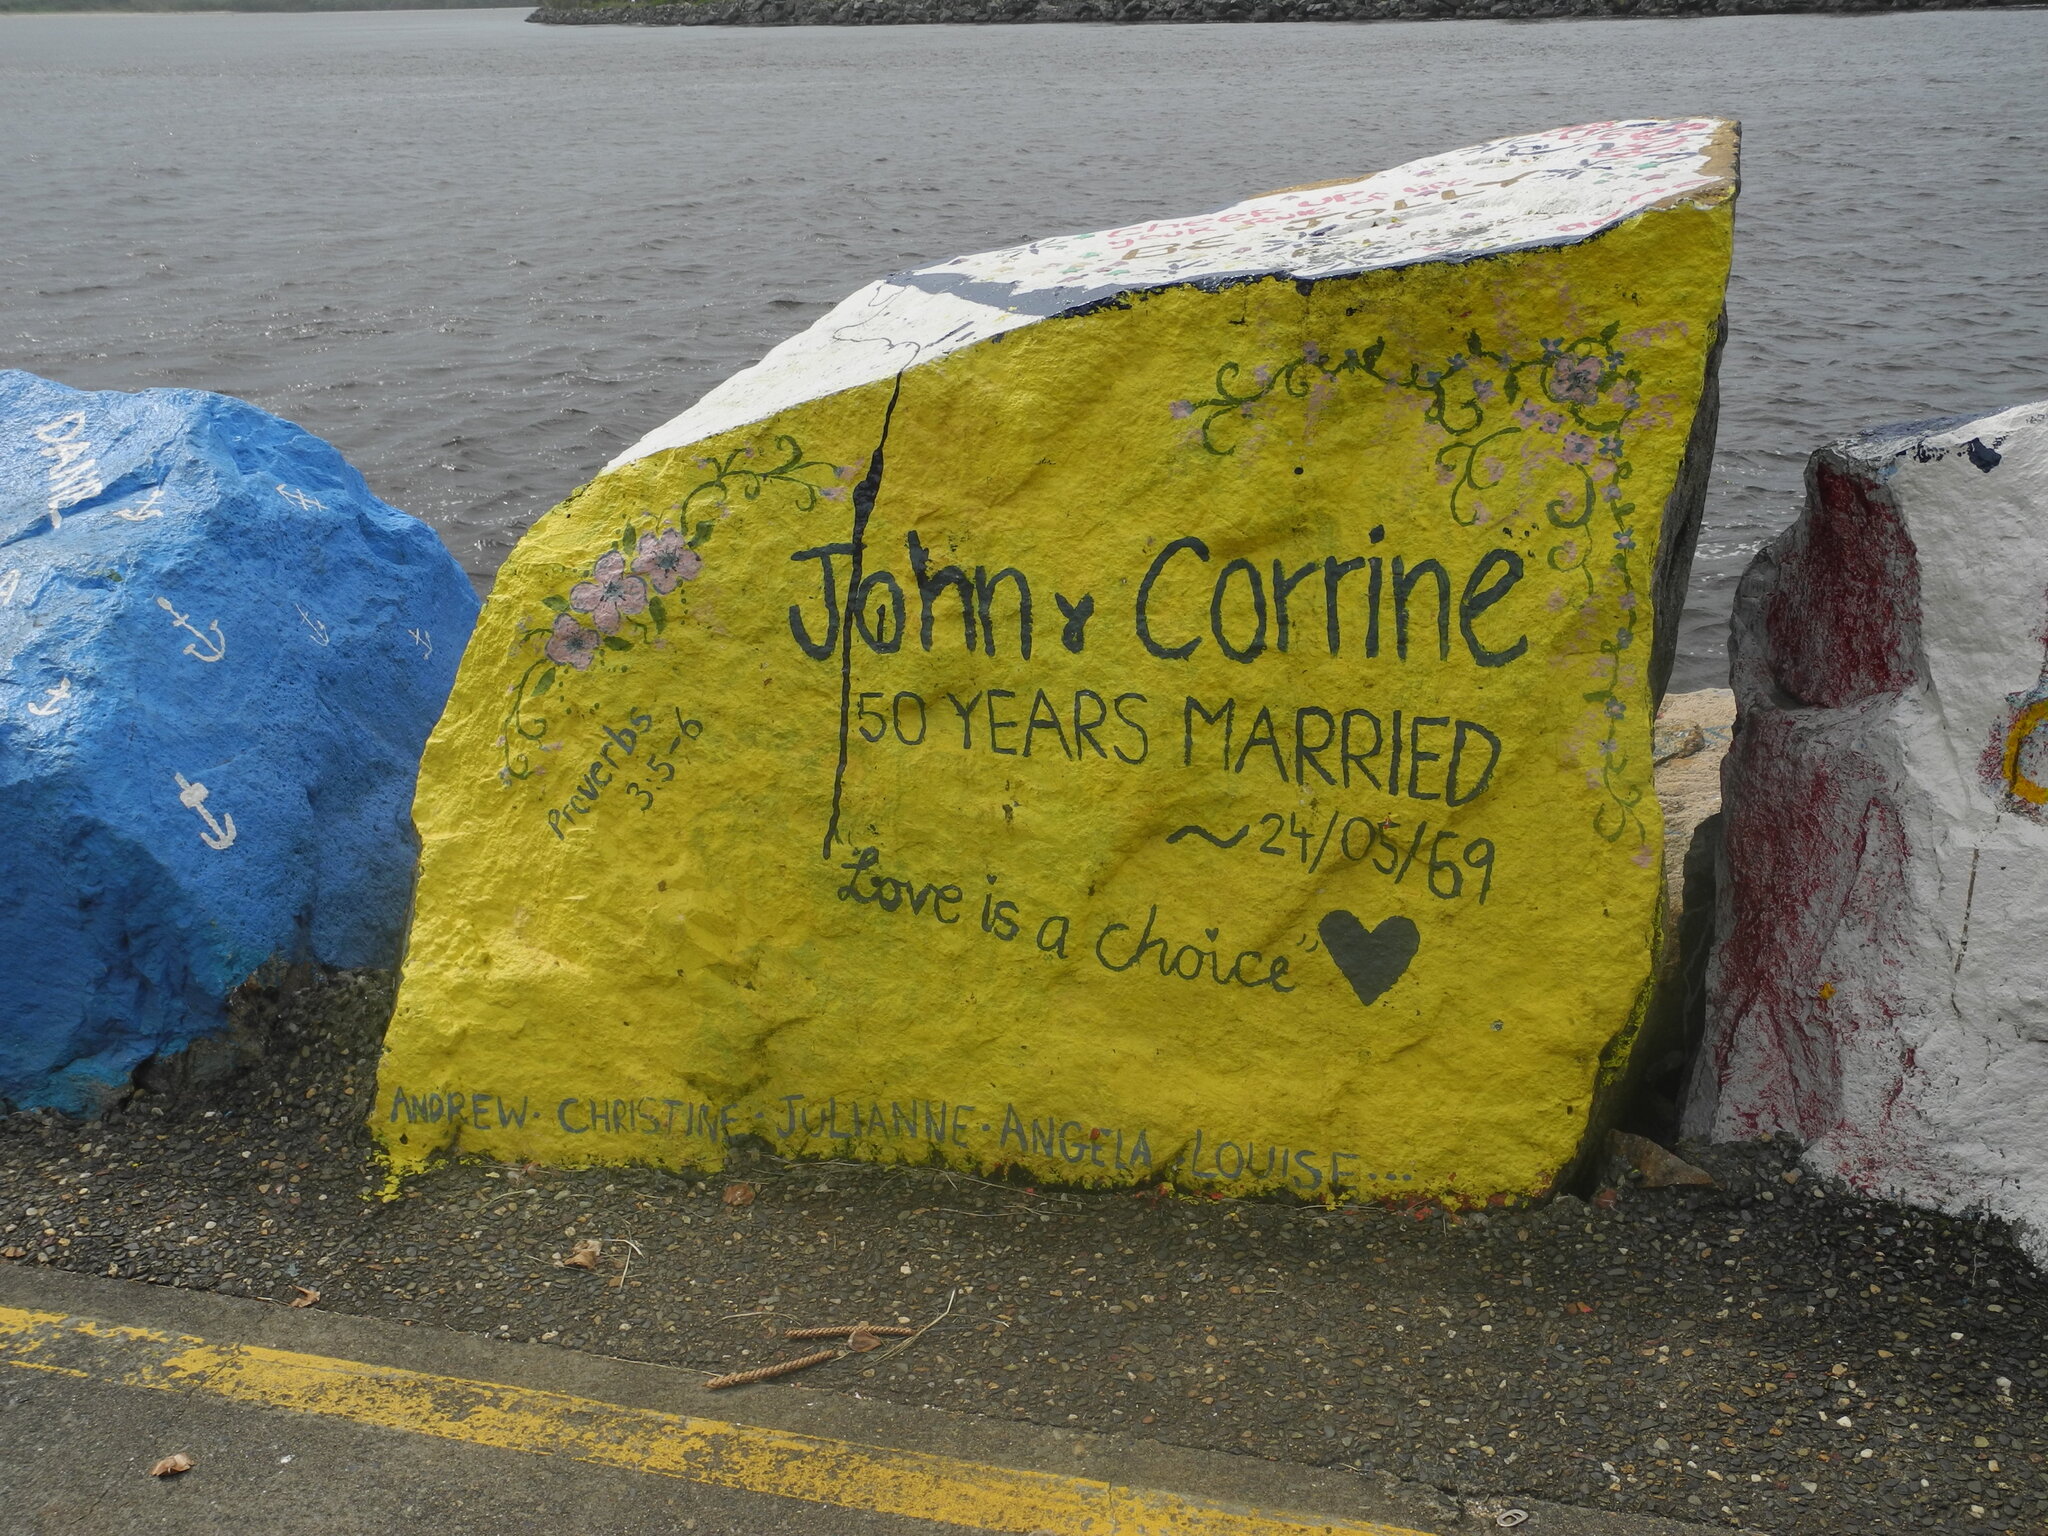 DANE
CHEER UP
BE JOLLY
John & Corrine
50 YEARS MARRIED
~24/05/69
Proverbs
3:5-6
Love is a choice"
ANDREW · CHRISTINE · JULIANNE · ANGELA · LOUISE...